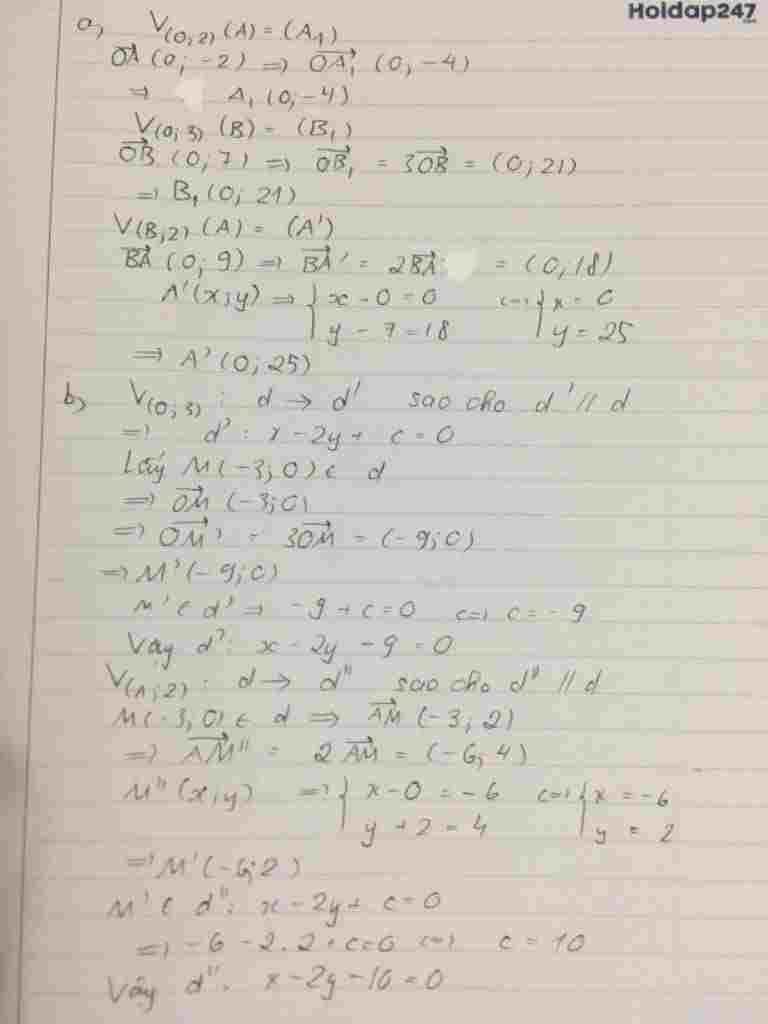 Hoidap247
a, V(0,2) (A) = (A₁)
OA⃗ (0; -2) => OA₁⃗ (0, -4)
=> A₁ (0; -4)
V(0;3) (B) = (B₁)
OB⃗ (0; 7) => OB₁⃗ = 3OB⃗ = (0; 21)
=> B₁ (0; 21)
V(B,2) (A) = (A')
BA⃗ (0; 9) => BA'⃗ = 2BA⃗ = (0, 18)
A'(x;y) => { x - 0 = 0 <=> { x = 0
y - 7 = 18 y = 25
=> A' (0; 25)
b, V(0;3) : d → d' sao cho d' // d
=> d' : x - 2y + c = 0
Lấy M(-3; 0) ∈ d
=> OM⃗ (-3; 0)
=> OM'⃗ = 3OM⃗ = (-9; 0)
=> M' (-9; 0)
M' ∈ d' => -9 + c = 0 <=> c = -9
Vậy d': x - 2y - 9 = 0
V(A;2) : d → d" sao cho d" // d
M(-3, 0) ∈ d => AM⃗ (-3; 2)
=> AM"⃗ = 2AM⃗ = (-6; 4)
M" (x;y) => { x - 0 = -6 <=> { x = -6
y + 2 = 4 y = 2
=> M' (-6; 2)
M' ∈ d": x - 2y + c = 0
=> -6 - 2.2 + c = 0 <=> c = 10
Vậy d": x - 2y - 10 = 0